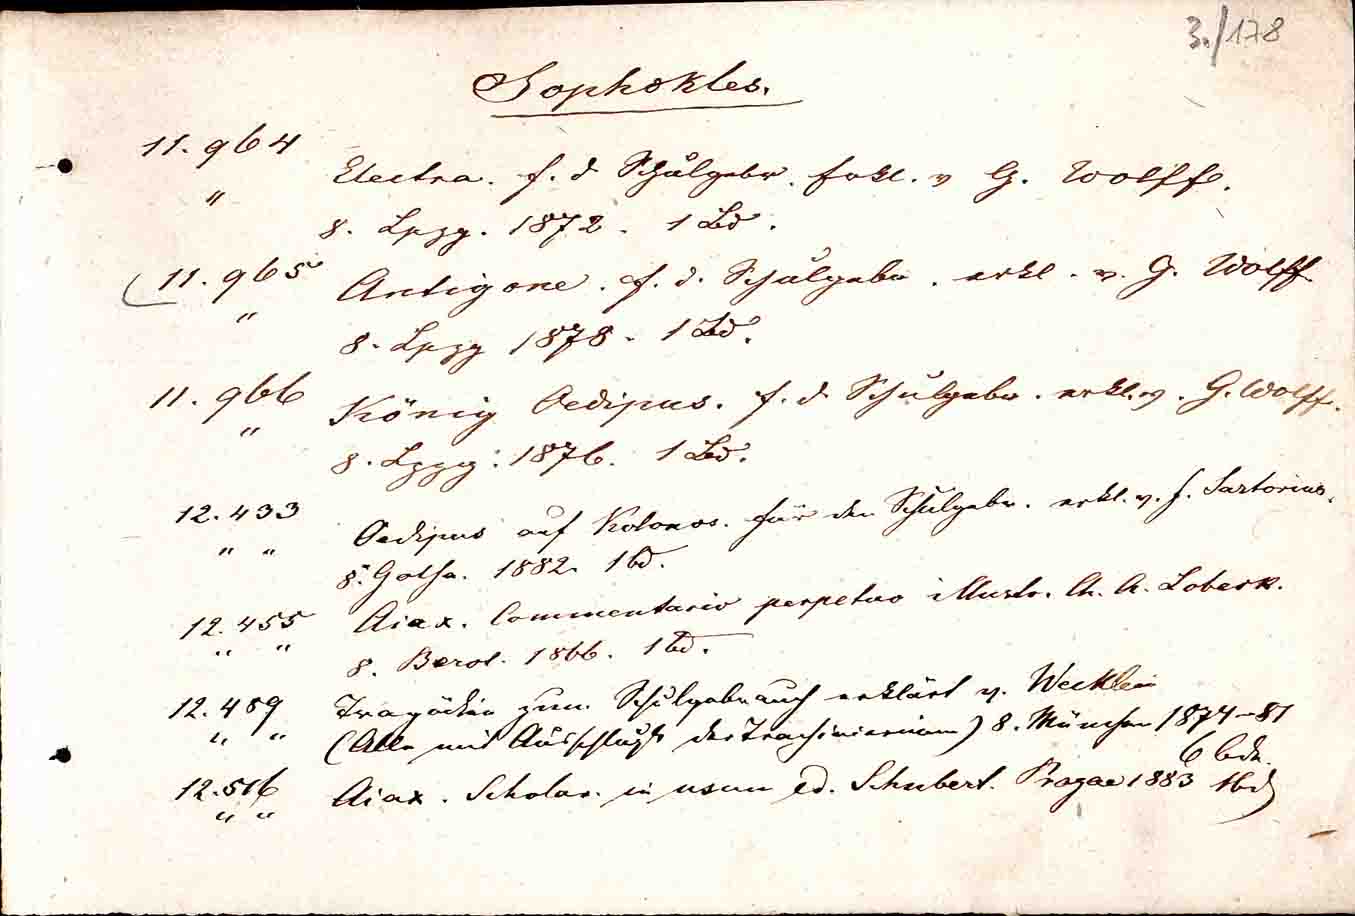 3./178
Sophokles.
11.964 Electra. f. d Schulgebr. Erkl. v G. Wolff.
" 8. Lpzg. 1872. 1 Bd.
11.965 Antigone. f. d. Schulgebr. erkl. v. G. Wolff
" 8. Lpzg 1878. 1 Bd.
11.966 König Oedipus. f. d. Schulgebr. erkl. v. G. Wolff.
" 8. Lpzg. 1876. 1 Bd.
12.433 Oedipus auf Kolonos. für den Schulgebr. erkl. v. F. Sartorius.
" " 8. Gotha. 1882. 1 bd.
12.455 Aiax. Commentario perpetuo illustr. Ch. A. Lobeck.
" " 8. Berol. 1866. 1 bd.
12.489 Tragödien zum Schulgebrauch erklärt v. Wecklein
" " (Alle mit Ausschluß der Trachinierinnen) 8. München 1874-81
6 bde.
12.516 Aiax. Scholar. in usum ed. Schubert. Pragae 1883 1bd
" "